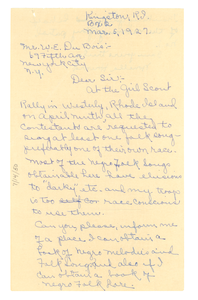 Kingston, R.I.
Box
Mar. 5, 1927.
Mr. W.E. Du Bois:-
69 Fifth Av.
New York City
N.Y.
Dear Sir:-
At the Girl Scout
Rally in Westerly, Rhode Island
on April ninth all the
contestants are requested to
sing at least one folk song -
preferably one of their own race.
Most of the Negro folk songs
obtainable here have allusions
to "darky" etc. and my troop
is too race conscious
to use them.
Can you please inform me
of a place I can obtain a
book of Negro melodies and
folk songs and also if I
can obtain a book of
Negro Folk lore.